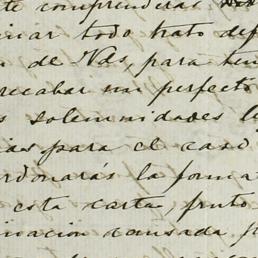 te comprenderás
inar todo trato def
de Vds, para ten
recabar un perfecto
s solemnidades
ias para el caso
rdonarás la forma
esta carta, fruto
inación cansada